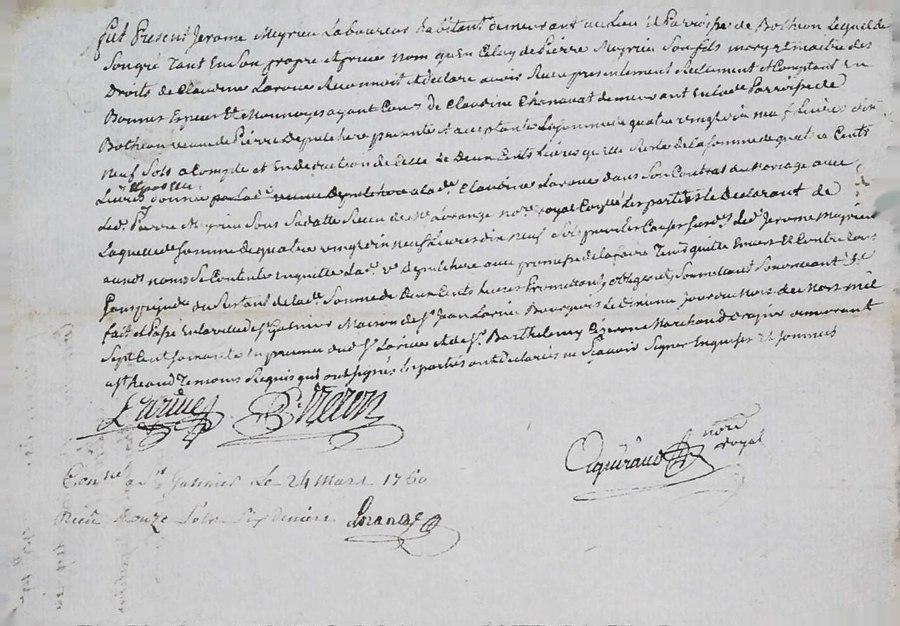 fut Present Jerome Meyrieu Laboureur habitant demeurant au Lieu et Parroisse de Botheon Lequel de
Son gré Tant En Son propre et prive nom qu'en Celuy de Pierre Meyrieu Son fils mary et maitre des
Droits de Claudine Laroue Reconnoit et declare avoir Receu presentement Reelement et Comptant En
Bonnes Especes Et Monnoyes ayant Cours de Claudine Chenavat demeurant En lad. Parroisse de
Botheon veuve de Pierre Depulchere presente et acceptante La somme de quatre vingt dix neuf Livres dix
neuf Sols a Compte et En deduction de Celle de Deux Cents Livres qu'elle Reste de la somme de quatre Cents
Livres donnée a lad. Claudine Laroue dans Son Contrat de Mariage avec
Led. Pre. Meyrieu Sous Sa datte Receu de Me. Lorange nore. royal les parties Le Declarant de
Laquelle de Somme de quatre vingt dix neuf Livres dix neuf Sols Led. Jerome Meyrieu
auxd. noms Se Contente En quitte lad. ve. Depulchere avec promesse de la faire Tenir quitte Envers Et Contre tous
du Restant de lad. Somme de Deux Cents Livres Promettant obligeant Soumettant Renonceant &c.
fait et Passé En la ville de St. Galmier Maison de Sr. Jean Larüe Bourgeois Le dixieme Jour du Mois de Mars mil
Sept Cent Soixante En presence dud. Sr. Larüe et de Sr. Barthelemy Marchand demeurant
Temoins Requis qui ont signés Les parties ont Declarés ne Scavoir Signer Enquises et Sommées
Larüe B. Neron
nore royal
Conlle. a St. Galmier Le 24 Mars 1760
Receu Douze Sols Six deniers Lorange